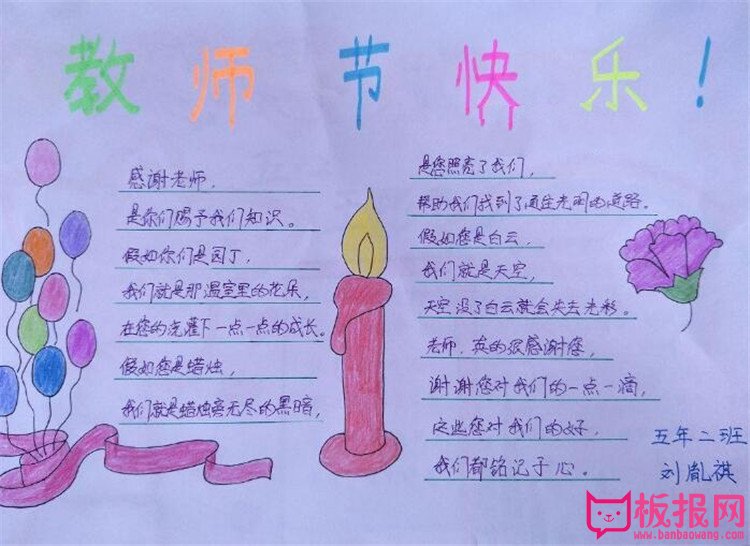 教师节快乐!
感谢老师，
是你们赐予我们知识。
假如你们是园丁，
我们就是那温室里的花朵，
在您的浇灌下一点一点的成长。
假如您是蜡烛，
我们就是蜡烛旁无尽的黑暗，
是您照亮了我们，
帮助我们找到了通往光明的道路。
假如您是白云，
我们就是天空，
天空没了白云就会失去光彩。
老师，真的很感谢您，
谢谢您对我们的一点一滴，
这些您对我们的好，
我们都铭记于心。
五年二班
刘胤祺
板报网
www.banbaowang.com